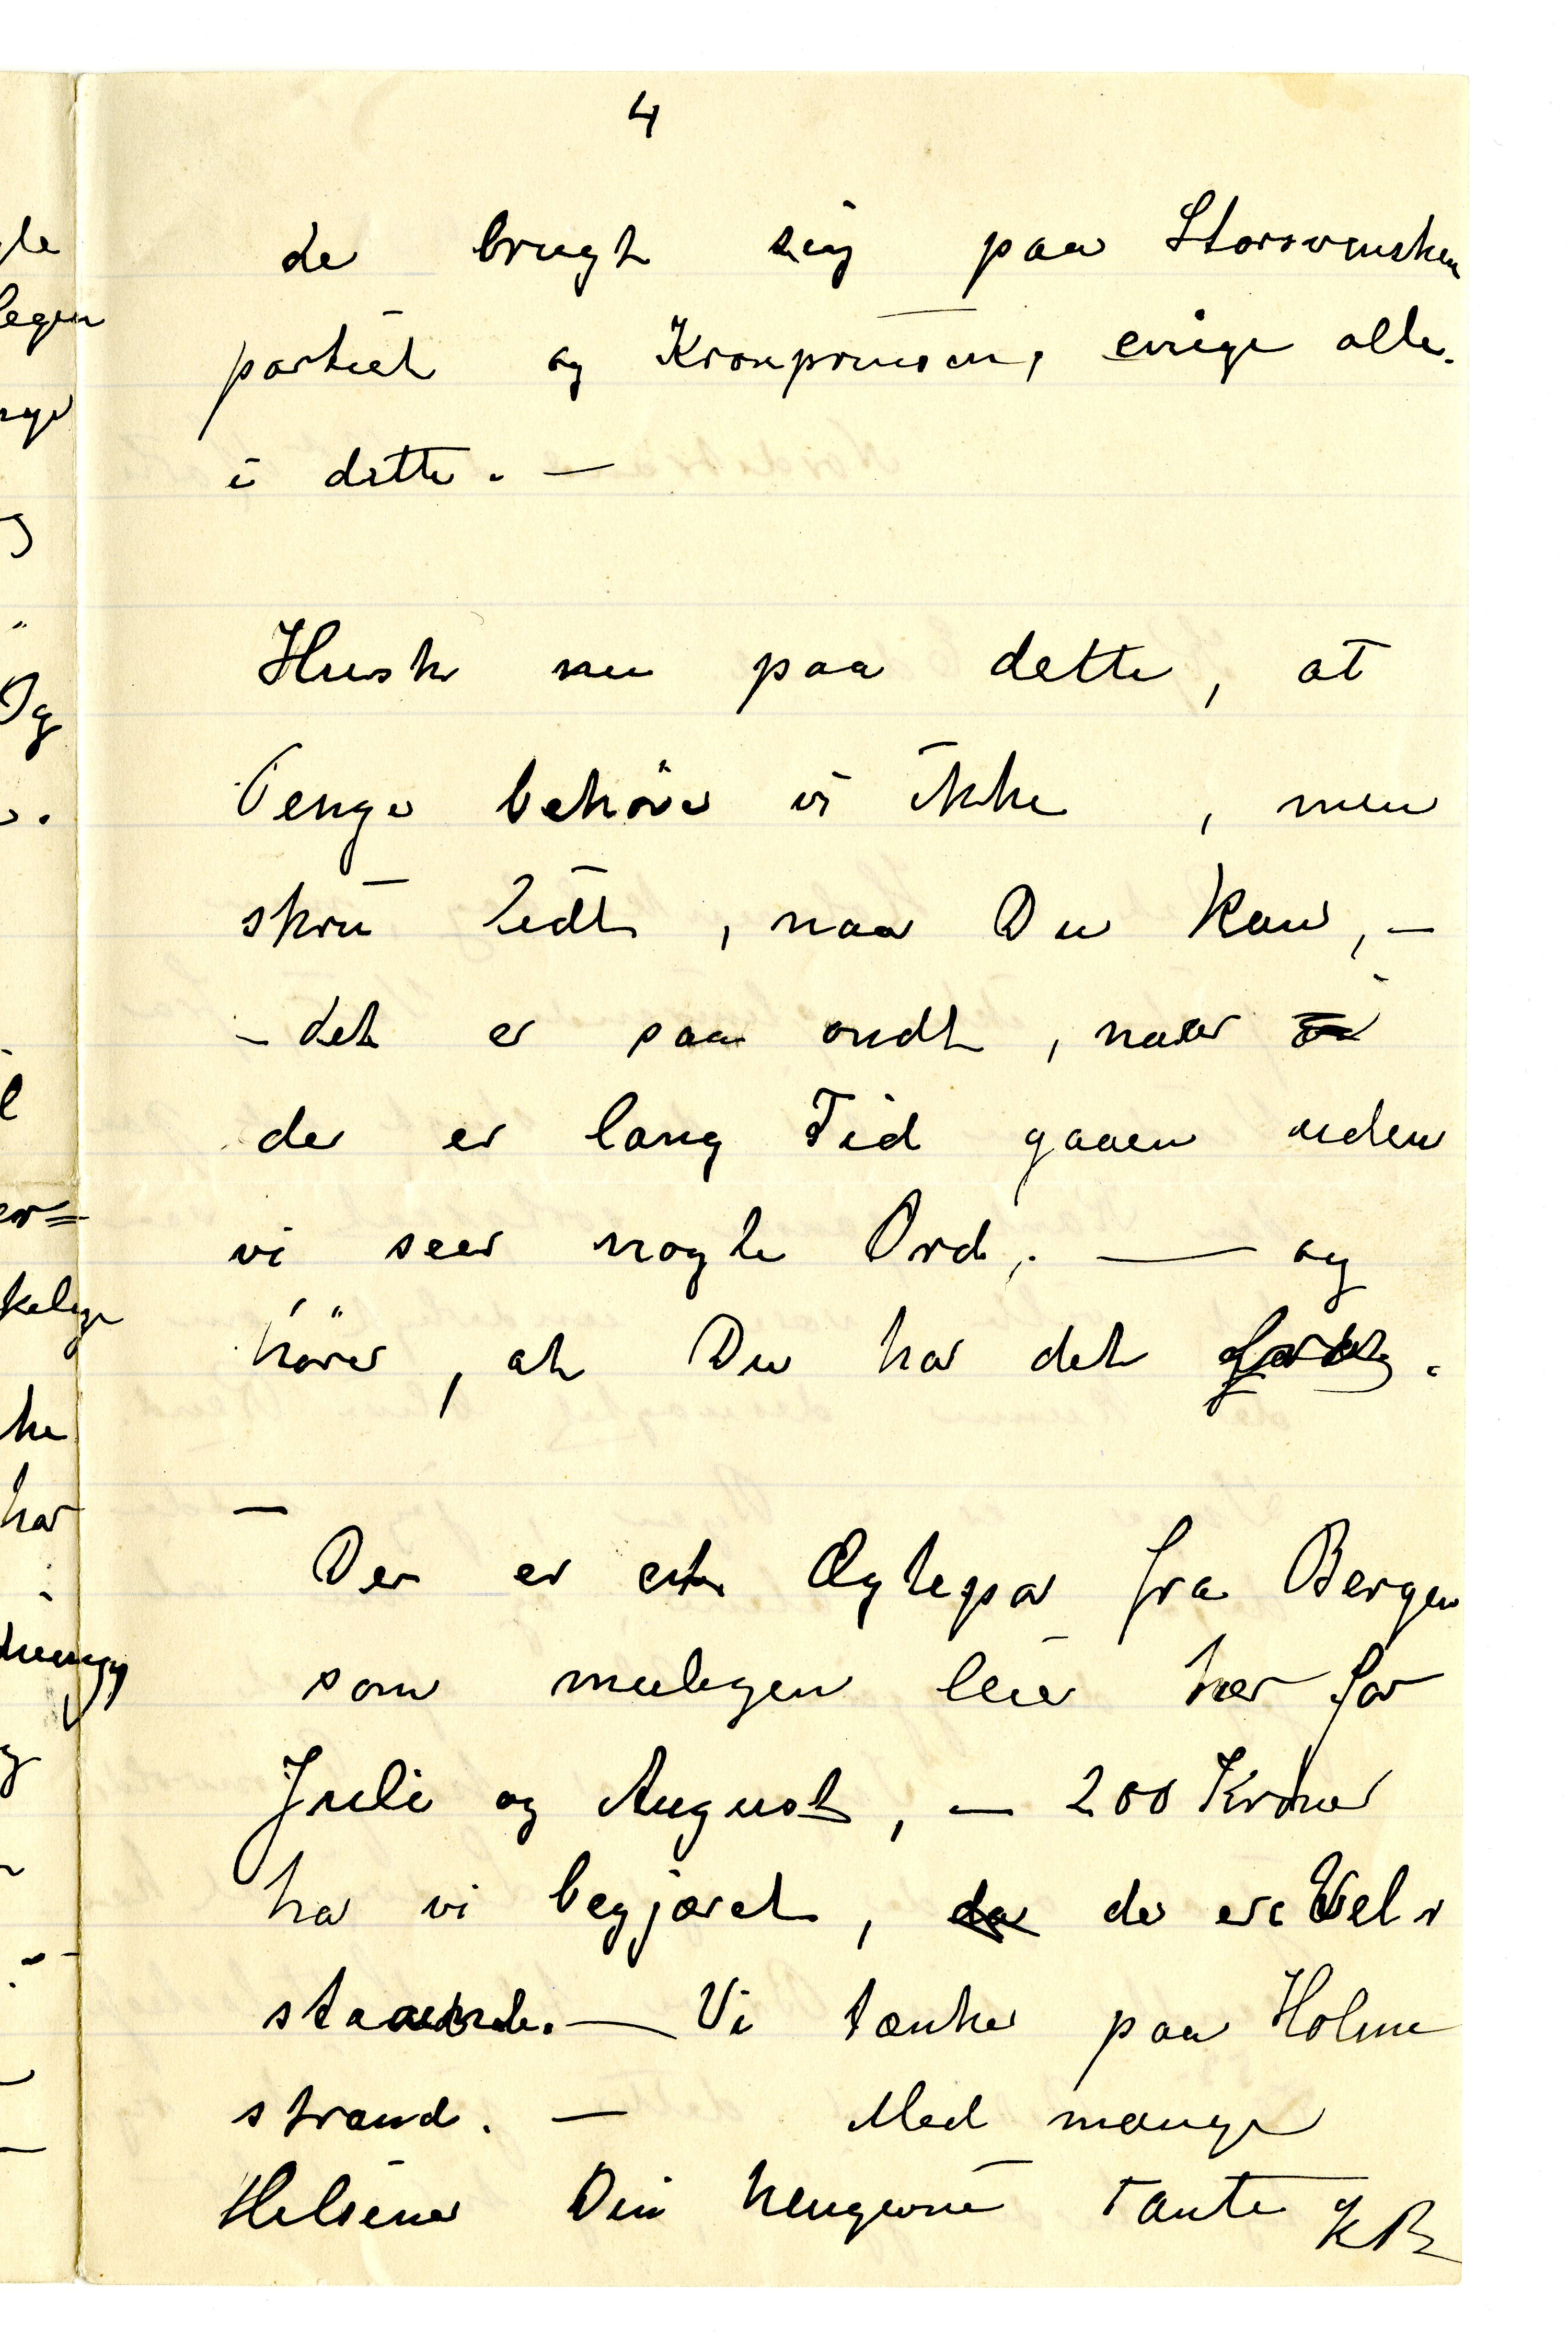 4
de brugt sig paa Storsvenske
partiet og Kronprinsen, enige alle.
i dette. —
Husk nu paa dette, at
Penge behöver vi ikke, men
skriv lidt, naar Du kan, —
– det er saa ondt, naar
der er lang Tid gaaen uden
vi seer nogle Ord, . — og
hörer, at Du har det godt.
— Der er et Ægtepar fra Bergen
som muligens leier her for
Juli og August, — 200 Kroner
har vi begjæret, da de ere Vel
staaende. — Vi tænker paa Holme
strand. — Med mange
Helsener Din hengivne Tante KB
le
legen
nge
g
Og
l
kelige
ke
har